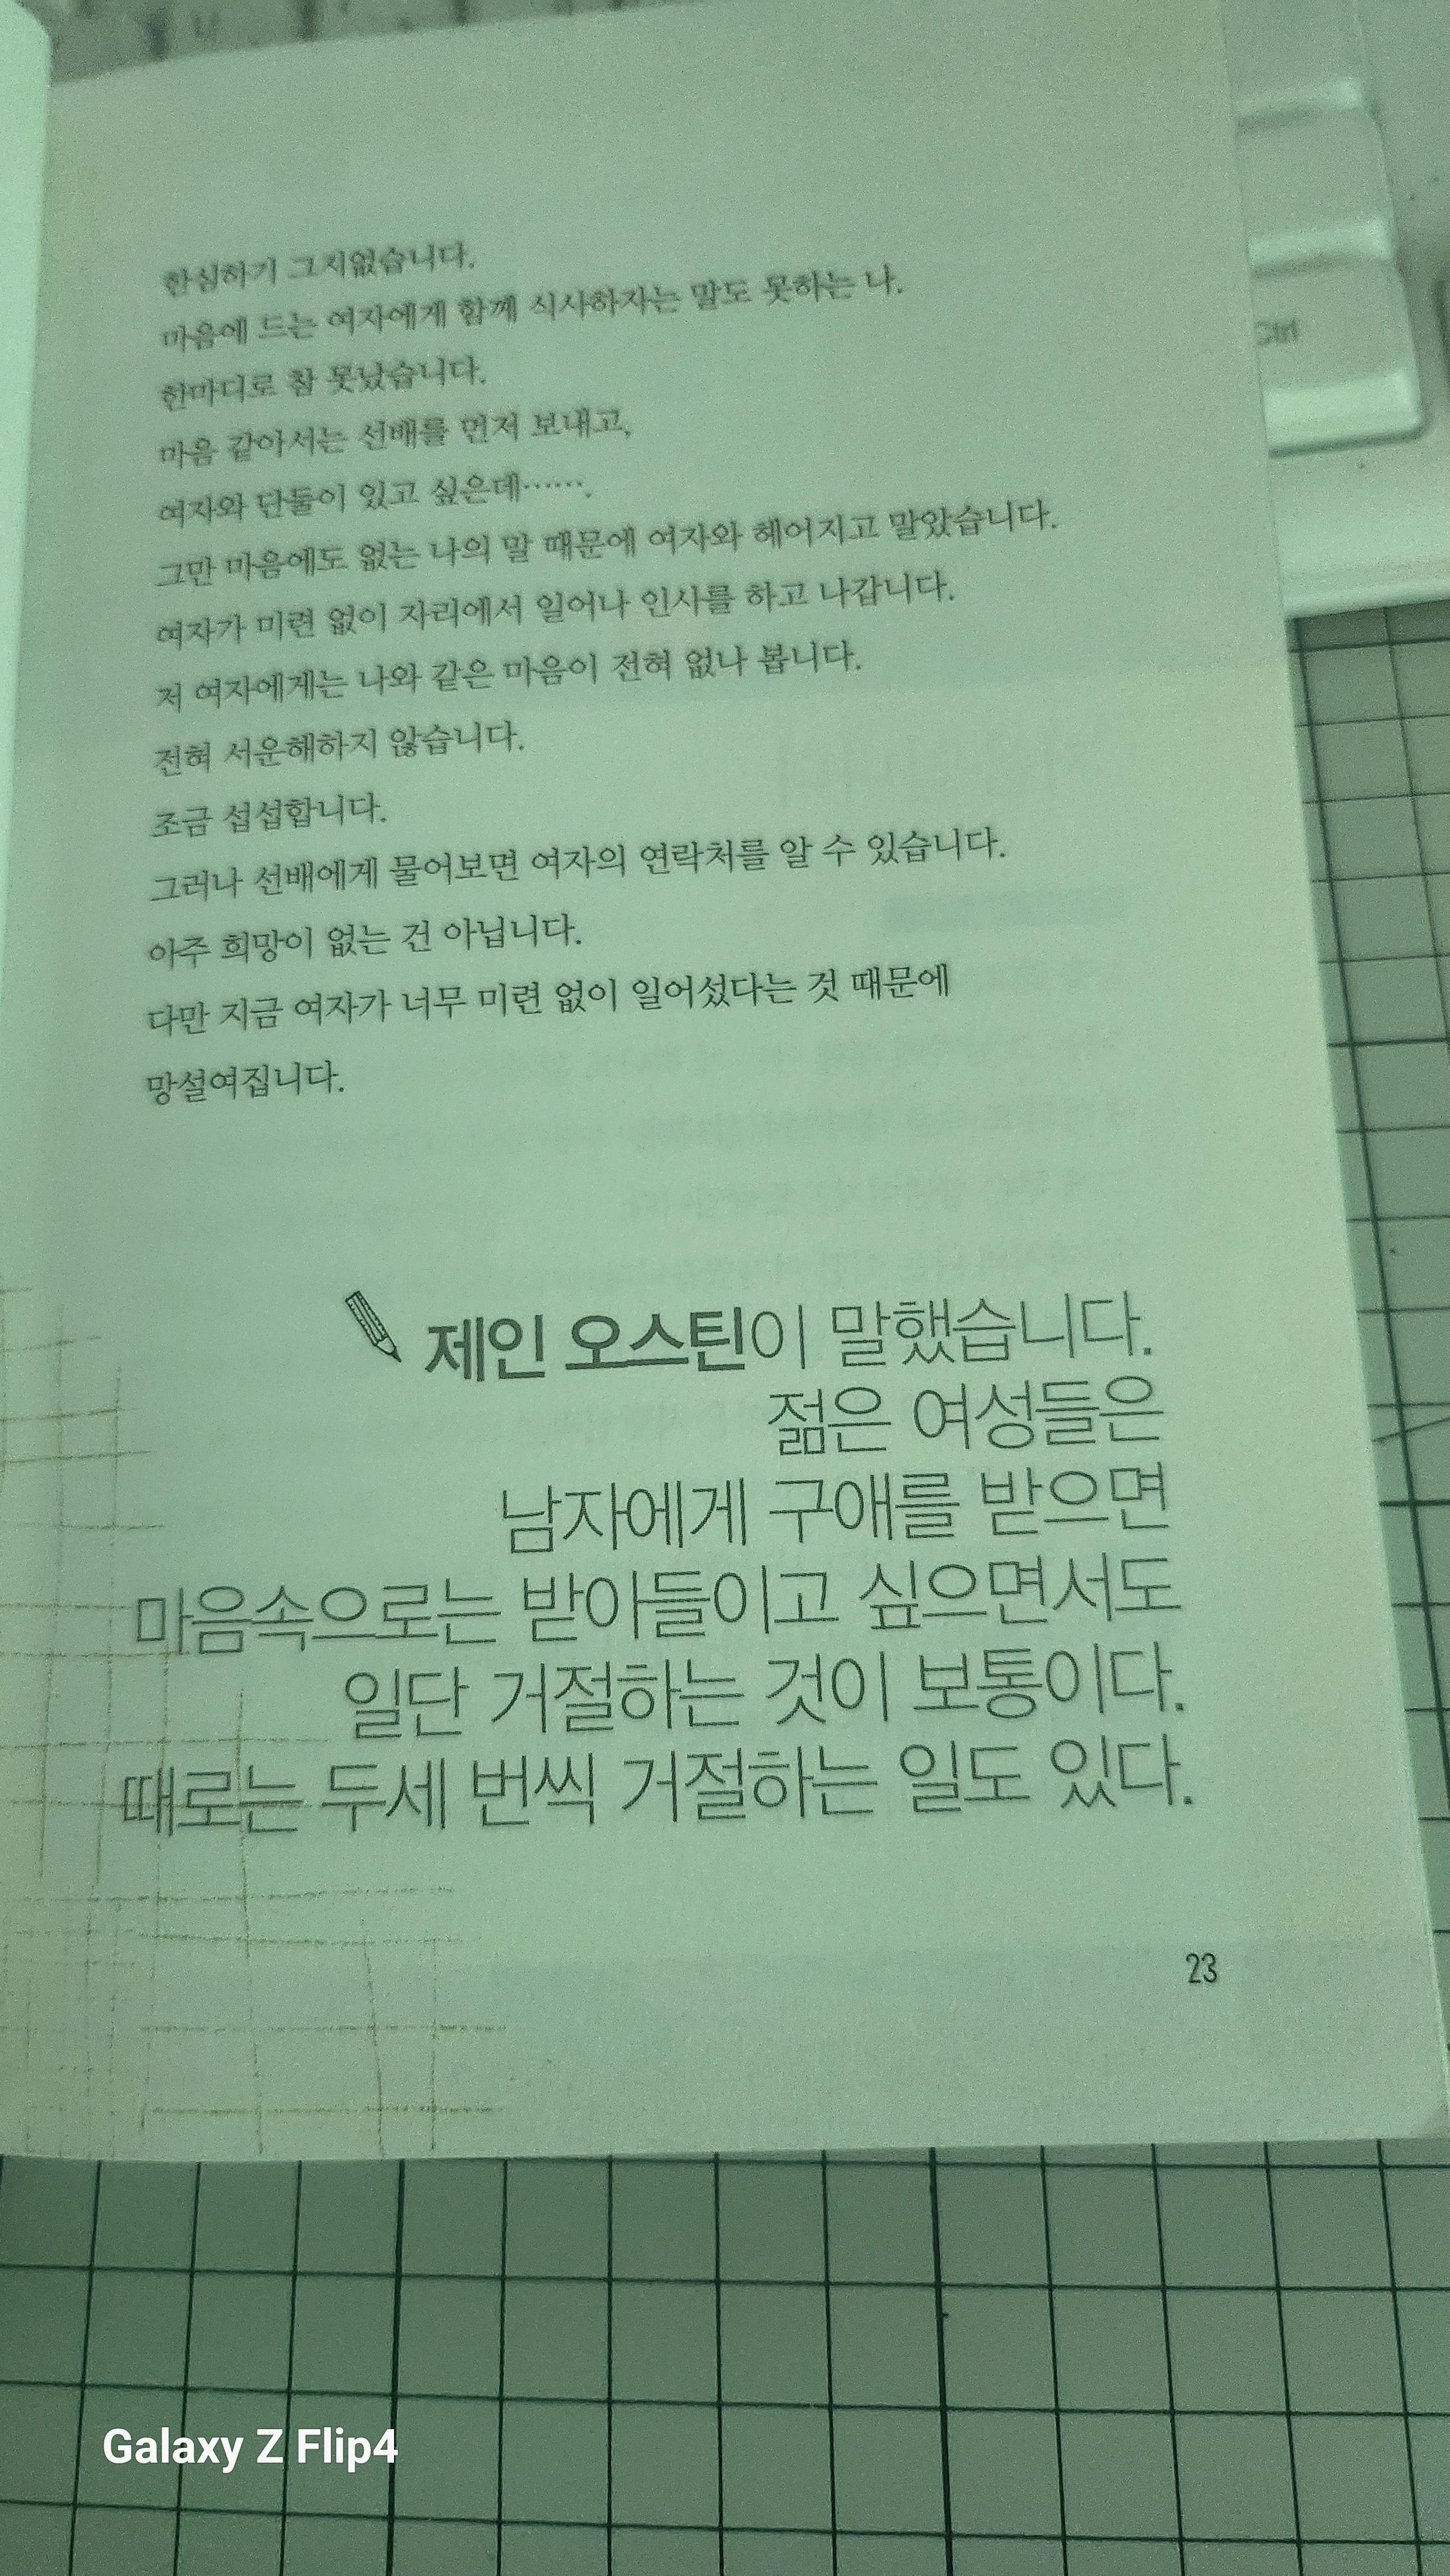 한심하기 그지없습니다.
마음에 드는 여자에게 함께 식사하자는 말도 못하는 나.
한마디로 참 못났습니다.
마음 같아서는 선배를 먼저 보내고,
여자와 단둘이 있고 싶은데…….
그만 마음에도 없는 나의 말 때문에 여자와 헤어지고 말았습니다.
여자가 미련 없이 자리에서 일어나 인사를 하고 나갑니다.
저 여자에게는 나와 같은 마음이 전혀 없나 봅니다.
전혀 서운해하지 않습니다.
조금 섭섭합니다.
그러나 선배에게 물어보면 여자의 연락처를 알 수 있습니다.
아주 희망이 없는 건 아닙니다.
다만 지금 여자가 너무 미련 없이 일어섰다는 것 때문에
망설여집니다.
제인 오스틴이 말했습니다.
젊은 여성들은
남자에게 구애를 받으면
마음속으로는 받아들이고 싶으면서도
일단 거절하는 것이 보통이다.
때로는 두세 번씩 거절하는 일도 있다.
23
Ctrl
Galaxy Z Flip4